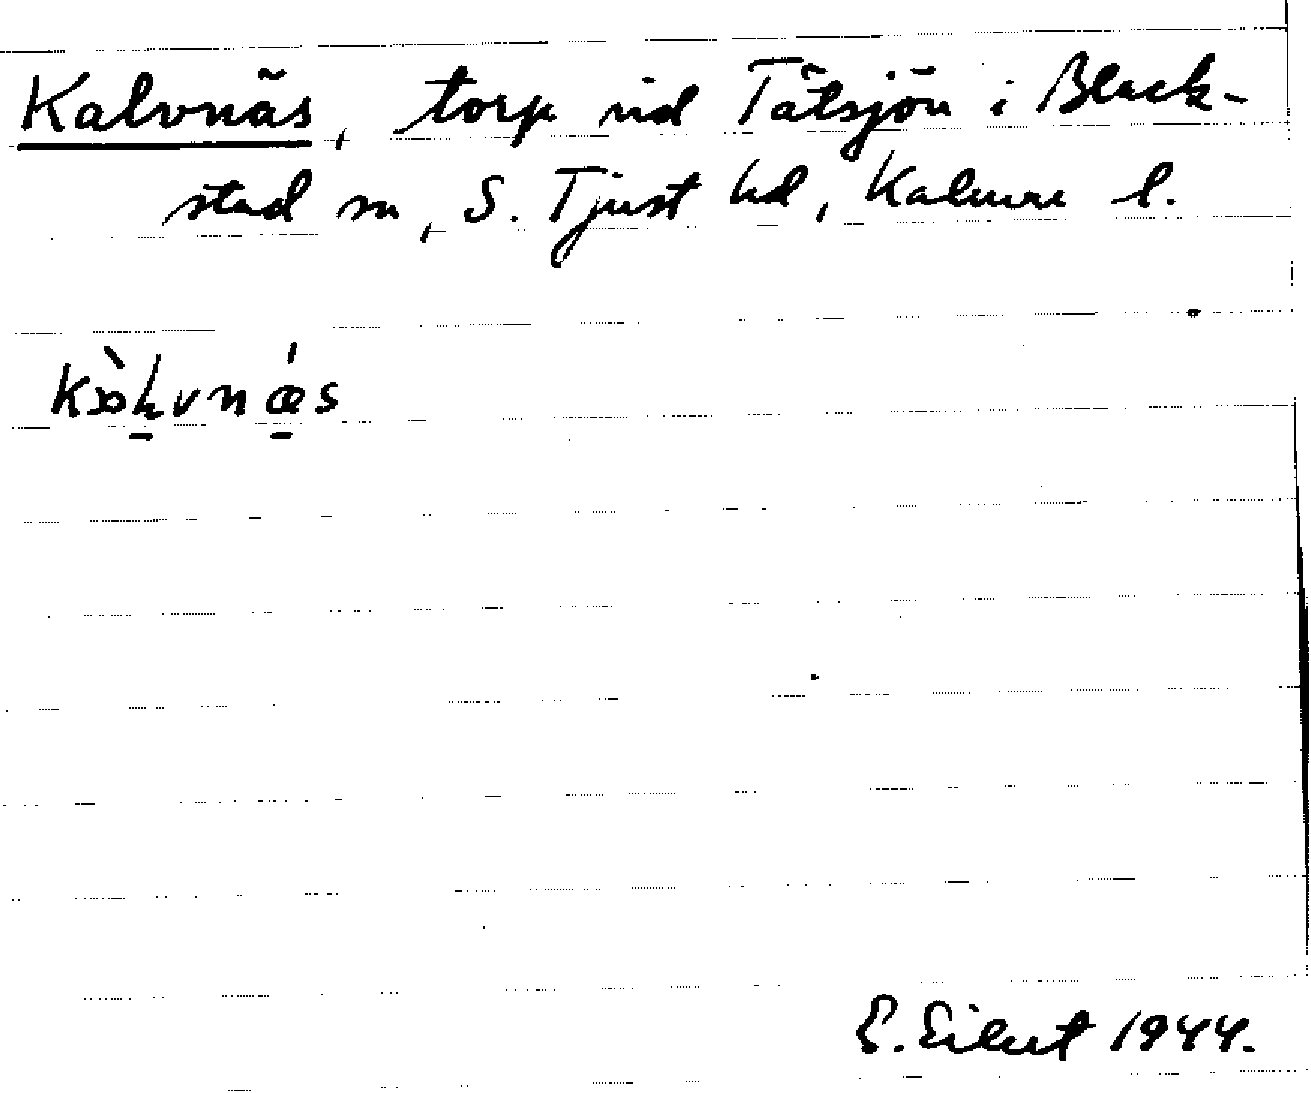 Kalvnäs, torp vid Tätsjön i Black-
stad sn, S. Tjust hd, Kalmar l.
E. Eilert 1944.